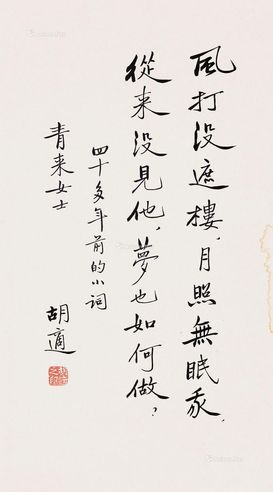 風打没遮樓，月照無眠我，
從来没見他，夢也如何做？
四十多年前的小詞
青来女士
胡適